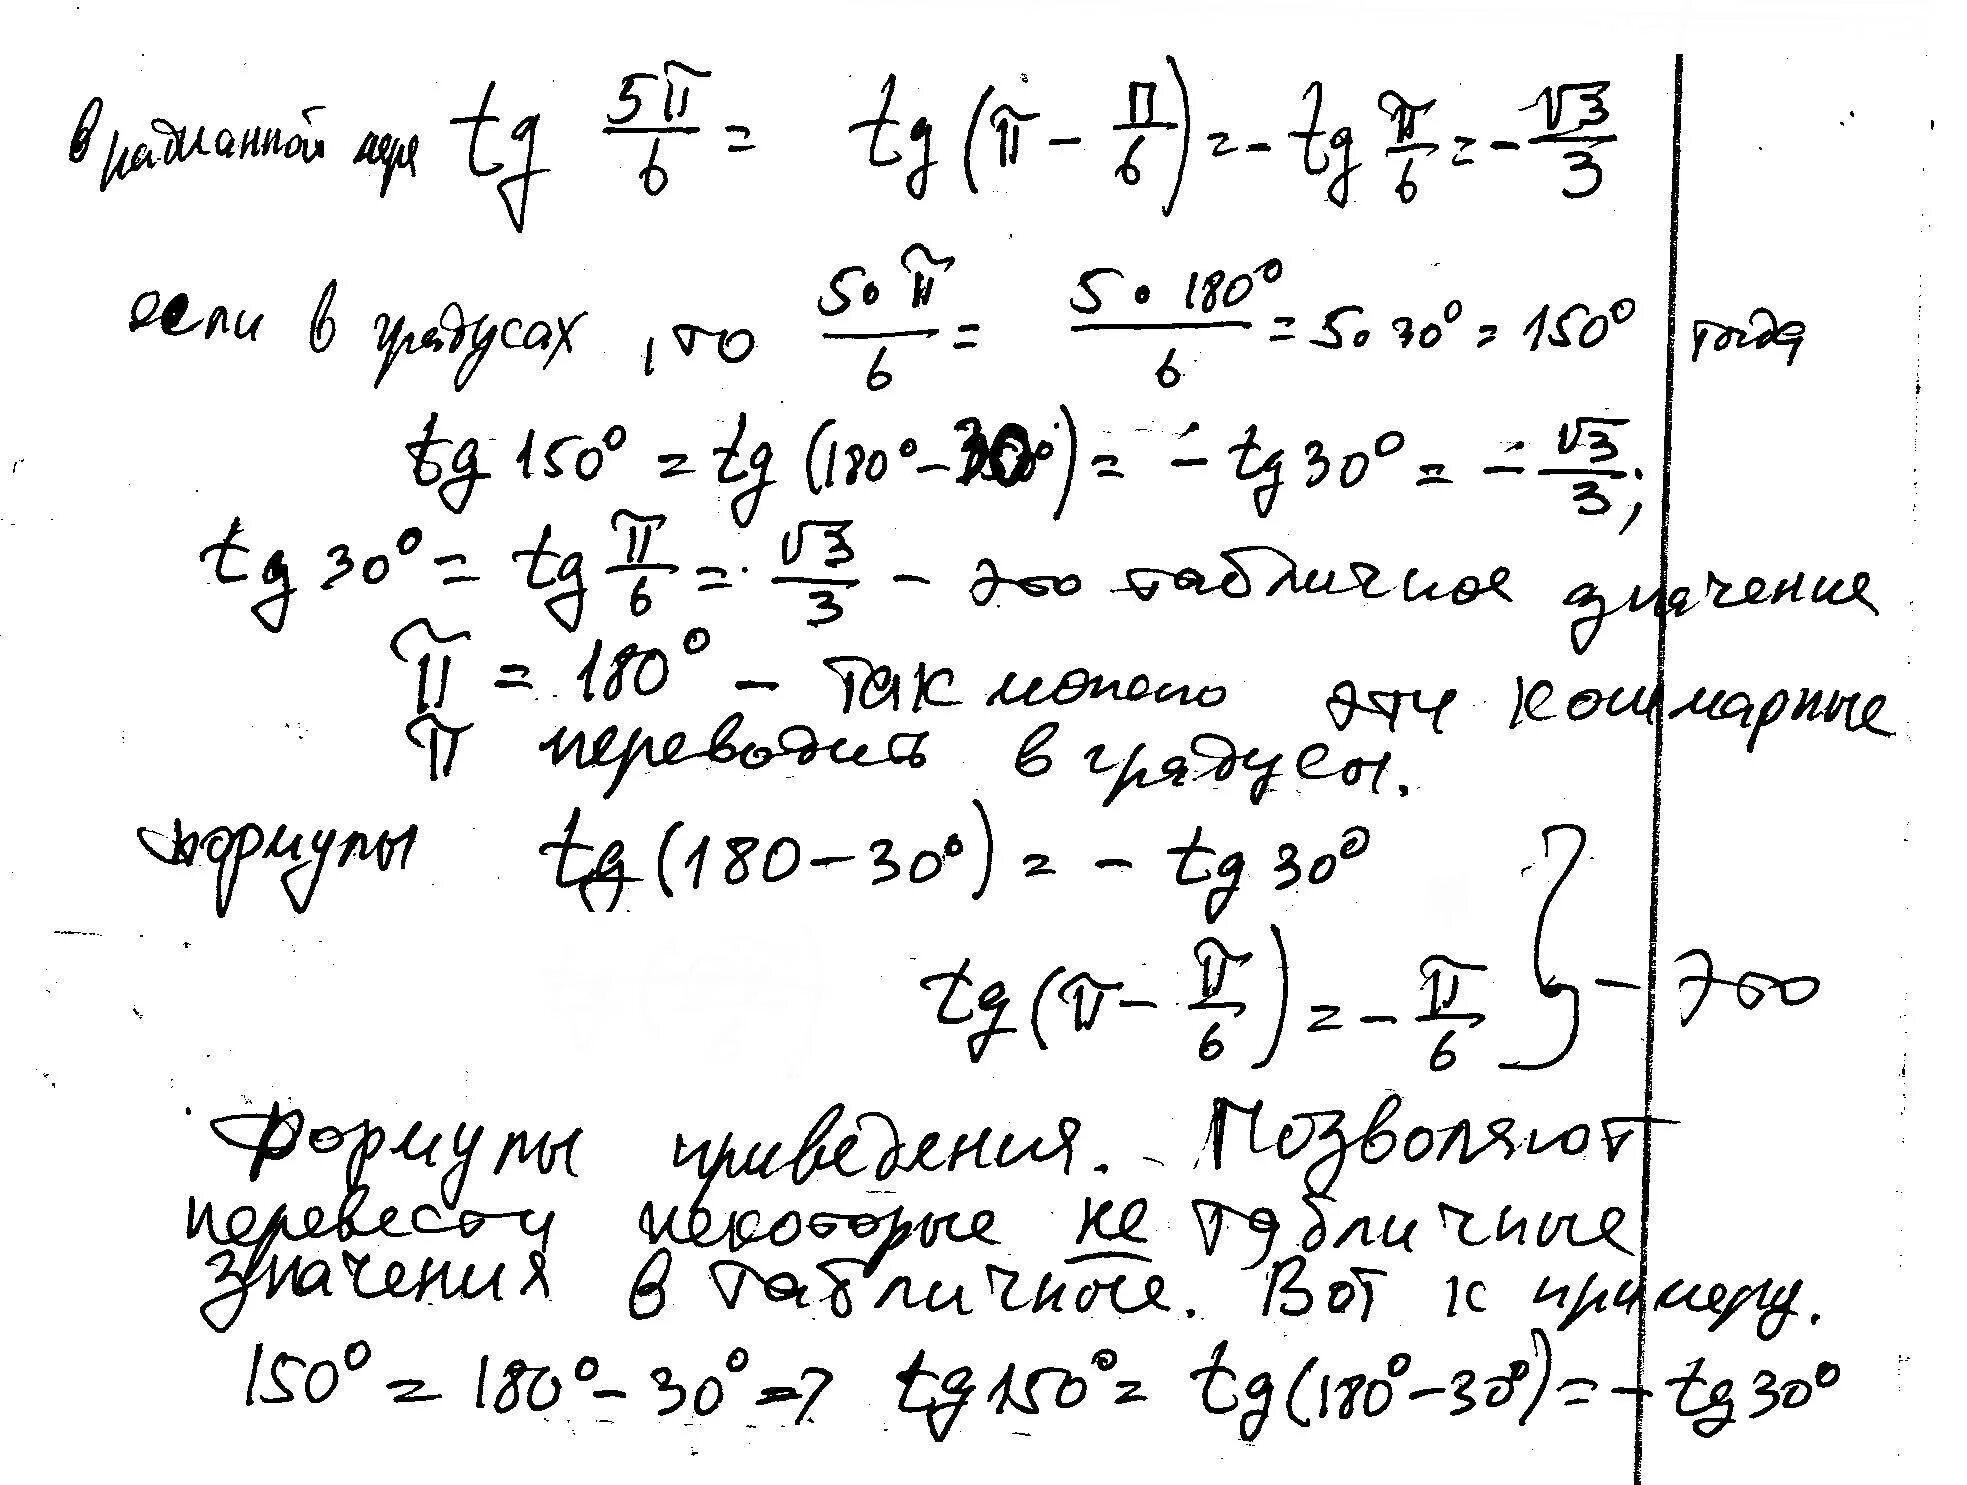 в радианной мере tg 5π/6 = tg(π - π/6) = - tg π/6 = - √3/3
если в градусах, то 5·π/6 = 5·180°/6 = 5·30° = 150° тогда
tg 150° = tg (180° - 30°) = - tg 30° = - √3/3;
tg 30° = tg π/6 = √3/3 - это табличное значение
π = 180° - так можно эти кошмарные
π переводить в градусы.
формулы tg(180 - 30°) = - tg 30°
tg(π - π/6) = - π/6 } - это
Формулы приведения. Позволяют
перевести некоторые не табличные
значения в табличное. Вот к примеру.
150° = 180° - 30° => tg 150° = tg(180° - 30°) = - tg 30°